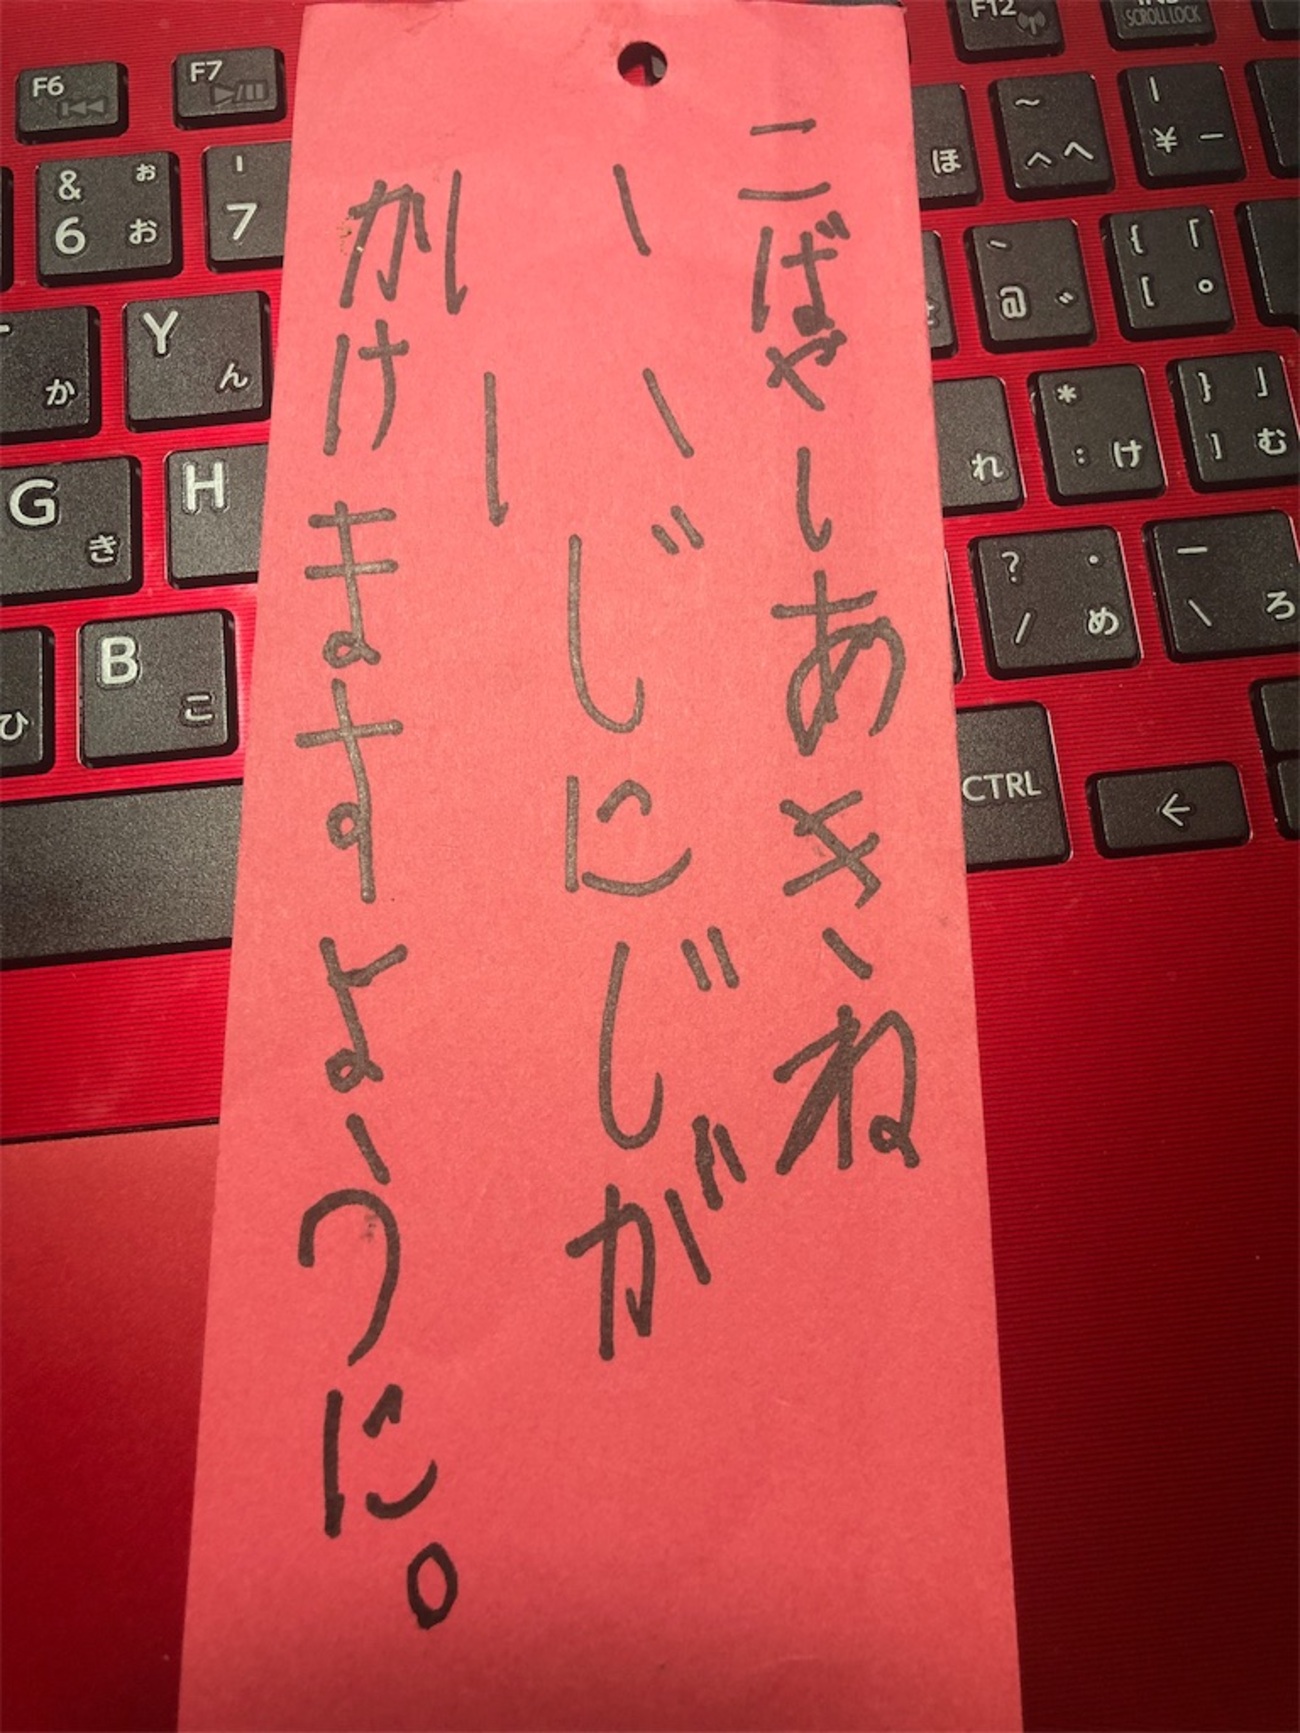 こばやしあきね
いいじにじが
かけますように。
F6
F7
F12
SCROLL LOCK
& ぉ
6 お
'
7
ほ
~
^ へ
|
¥ ー
か
Y
ん
@ ゛
{ 「
[ ゜
G
き
H
れ
*
: け
} 」
] む
ひ
B
こ
? ・
/ め
_
\ ろ
CTRL
←